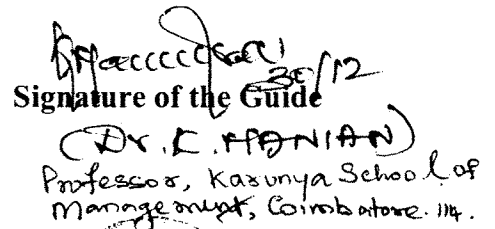 30/12
Signature of the Guide
(Dr. K. MANIAN)
Professor, Karunya School of
Management, Coimbatore. 114.